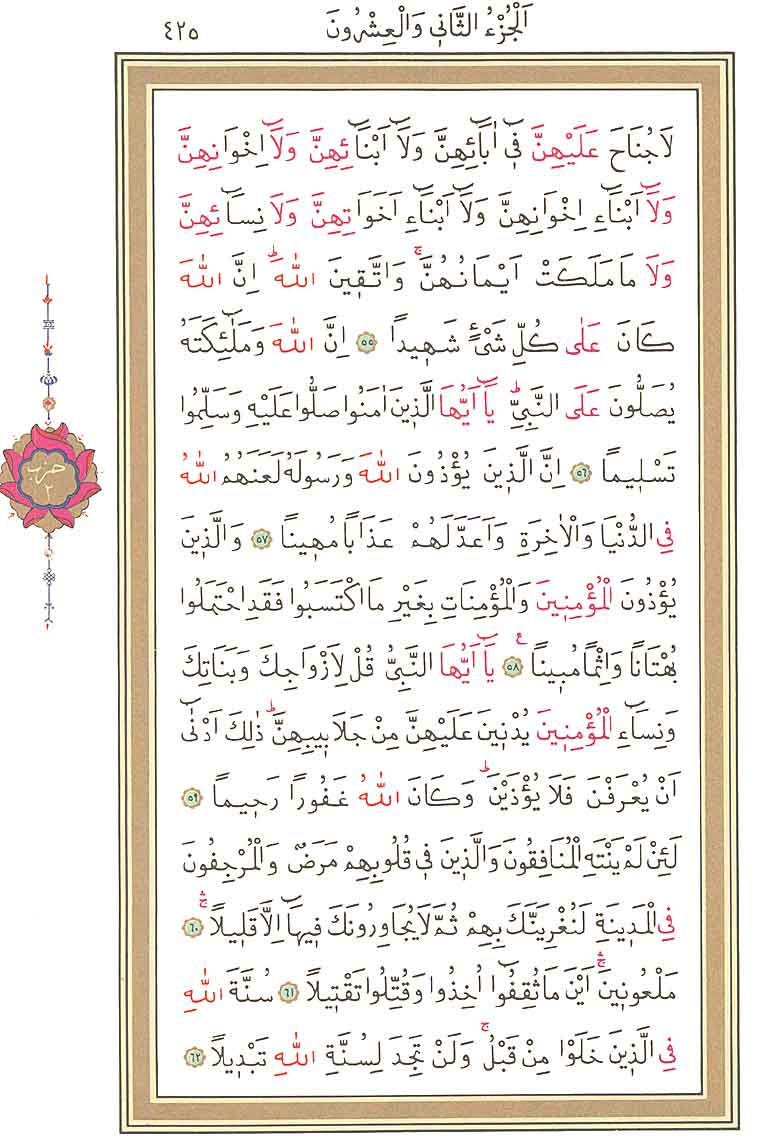 اَلْجُزْءُ الثَّانٖي وَالْعِشْرُونَ
٤٢٥
لَا جُنَاحَ عَلَيْهِنَّ فٖٓي اٰبَٓائِهِنَّ وَلَٓا اَبْنَٓائِهِنَّ وَلَٓا اِخْوَانِهِنَّ
وَلَٓا اَبْنَٓاءِ اِخْوَانِهِنَّ وَلَٓا اَبْنَٓاءِ اَخَوَاتِهِنَّ وَلَا نِسَٓائِهِنَّ
وَلَا مَا مَلَكَتْ اَيْمَانُهُنَّۚ وَاتَّقٖينَ اللّٰهَۜ اِنَّ اللّٰهَ
كَانَ عَلٰى كُلِّ شَيْءٍ شَهٖيداً ٥٥ اِنَّ اللّٰهَ وَمَلٰٓئِكَتَهُ
يُصَلُّونَ عَلَى النَّبِيِّۜ يَٓا اَيُّهَا الَّذٖينَ اٰمَنُوا صَلُّوا عَلَيْهِ وَسَلِّمُوا
تَسْلٖيماً ٥٦ اِنَّ الَّذٖينَ يُؤْذُونَ اللّٰهَ وَرَسُولَهُ لَعَنَهُمُ اللّٰهُ
فِي الدُّنْيَا وَالْاٰخِرَةِ وَاَعَدَّ لَهُمْ عَذَاباً مُهٖيناً ٥٧ وَالَّذٖينَ
يُؤْذُونَ الْمُؤْمِنٖينَ وَالْمُؤْمِنَاتِ بِغَيْرِ مَا اكْتَسَبُوا فَقَدِ احْتَمَلُوا
بُهْتَاناً وَاِثْماً مُبٖيناً ٥٨ ع يَٓا اَيُّهَا النَّبِيُّ قُلْ لِاَزْوَاجِكَ وَبَنَاتِكَ
وَنِسَٓاءِ الْمُؤْمِنٖينَ يُدْنٖينَ عَلَيْهِنَّ مِنْ جَلَابٖيبِهِنَّۜ ذٰلِكَ اَدْنٰٓى
اَنْ يُعْرَفْنَ فَلَا يُؤْذَيْنَۜ وَكَانَ اللّٰهُ غَفُوراً رَحٖيماً ٥٩
لَئِنْ لَمْ يَنْتَهِ الْمُنَافِقُونَ وَالَّذٖينَ فٖي قُلُوبِهِمْ مَرَضٌ وَالْمُرْجِفُونَ
فِي الْمَدٖينَةِ لَنُغْرِيَنَّكَ بِهِمْ ثُمَّ لَا يُجَاوِرُونَكَ فٖيهَٓا اِلَّا قَلٖيلاًۛۚ ٦٠
مَلْعُونٖينَۛۚ اَيْنَ مَا ثُقِفُٓوا اُخِذُوا وَقُتِّلُوا تَقْتٖيلاً ٦١ سُنَّةَ اللّٰهِ
فِي الَّذٖينَ خَلَوْا مِنْ قَبْلُۚ وَلَنْ تَجِدَ لِسُنَّةِ اللّٰهِ تَبْدٖيلاً ٦٢
حزب
٢